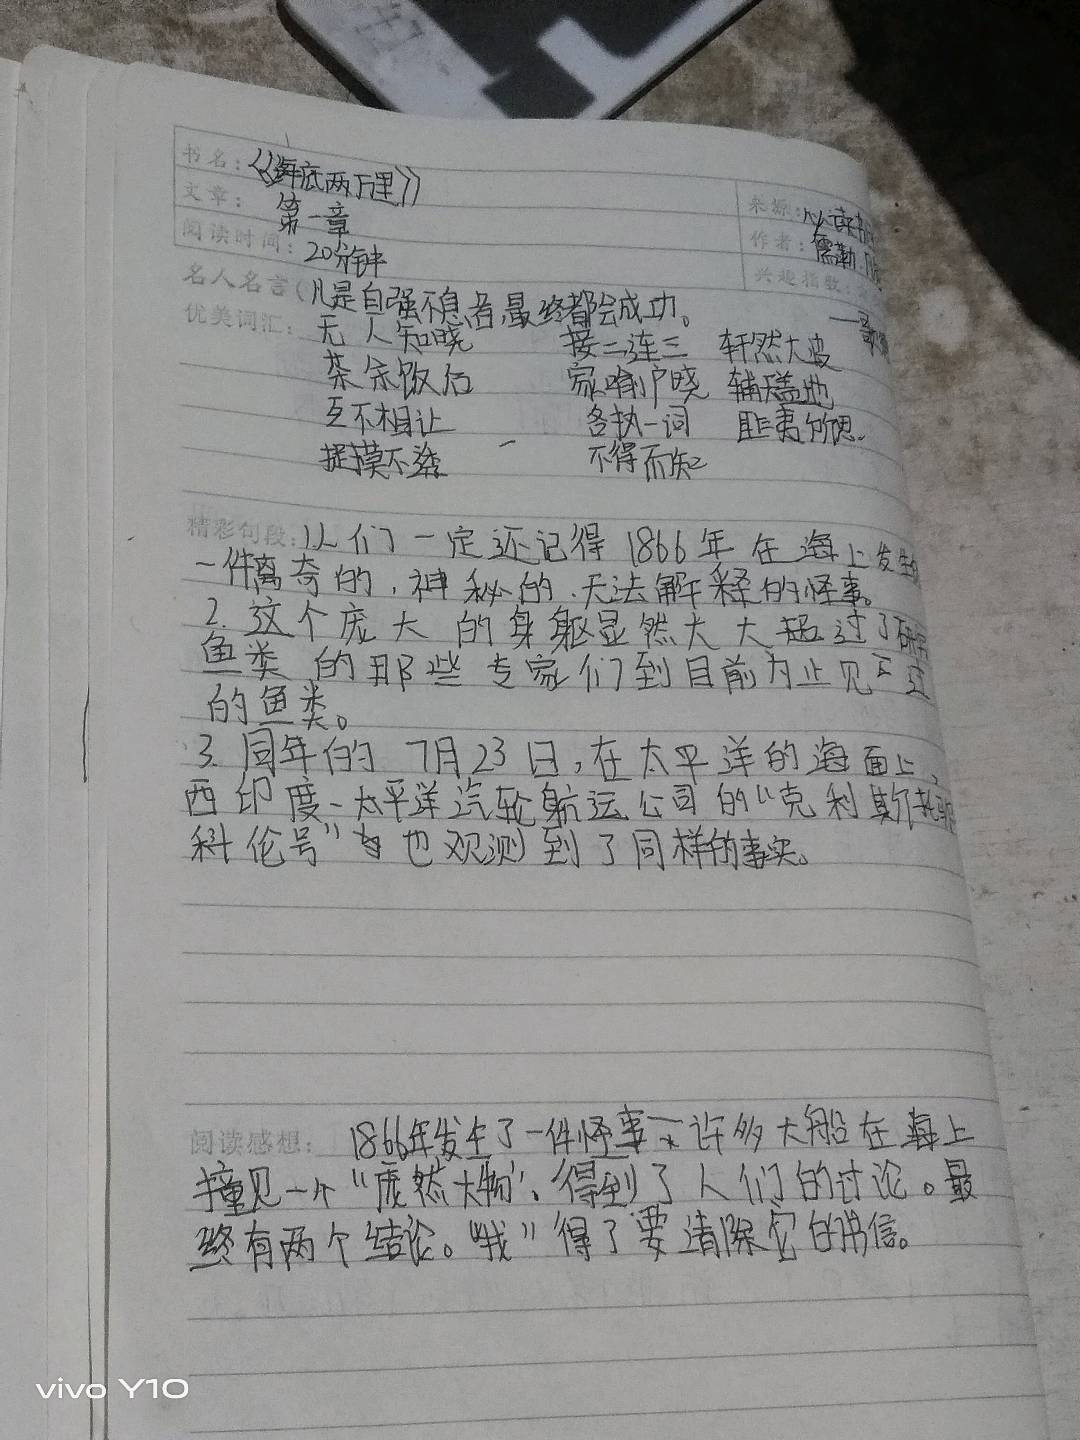 书名：《海底两万里》
来源：
文章： 第一章
作者：儒勒
阅读时间：20分钟
兴趣指数：
名人名言（凡是自强不息者,最终都会成功。
优美词汇：无人知晓 接二连三 轩然大波
茶余饭后 家喻户晓
互不相让 各执一词 匪夷所思
捉摸不透 不得而知
精彩句段：1人们一定还记得1866年在海上发生的
一件离奇的,神秘的、无法解释的怪事。
2.这个庞大的身躯显然大大超过了研究
鱼类的那些专家们到目前为止见
的鱼类。
3.同年的7月23日,在太平洋的海面上,
西印度-太平洋汽轮航运公司的“克利斯托
科伦号”也观测到了同样的事实。
阅读感想： 1866年发生了一件怪事 许多大船在海上
撞见一个“庞然大物”,得到了人们的讨论。最
终有两个结论。“我”得了要清除它的书信。
vivo Y10